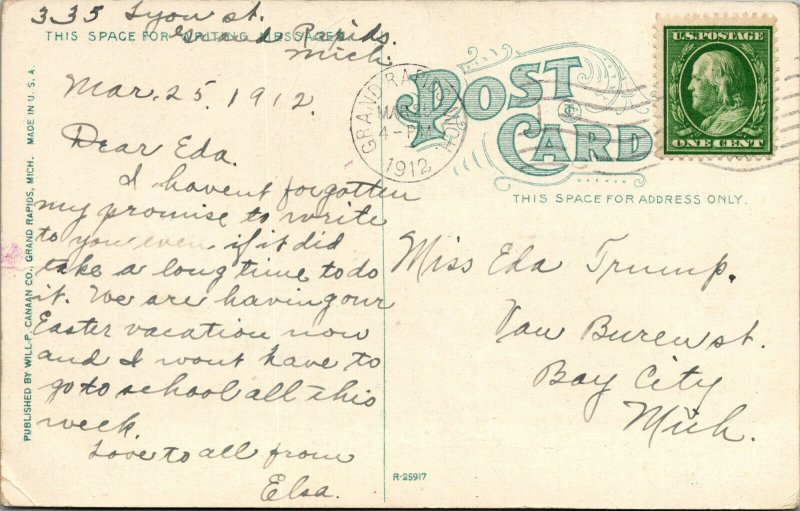 335 Lyon st.
Grand Rapids.
Mich.
THIS SPACE FOR WRITING MESSAGES
Mar. 25, 1912.
Dear Eda.
I havent forgotten
my promise to write
to you even if it did
take a long time to do
it. We are having our
Easter vacation now
and I wont have to
go to school all this
week.
Love to all from
Elsa.
PUBLISHED BY WILL P. CANAAN CO., GRAND RAPIDS, MICH. MADE IN U. S. A.
GRAND RAPIDS MICH
MAR
4-PM
1912
POST
CARD
THIS SPACE FOR ADDRESS ONLY.
U.S. POSTAGE
ONE CENT
Miss Eda Trump.
Van Buren st.
Bay City
Mich.
R-25917